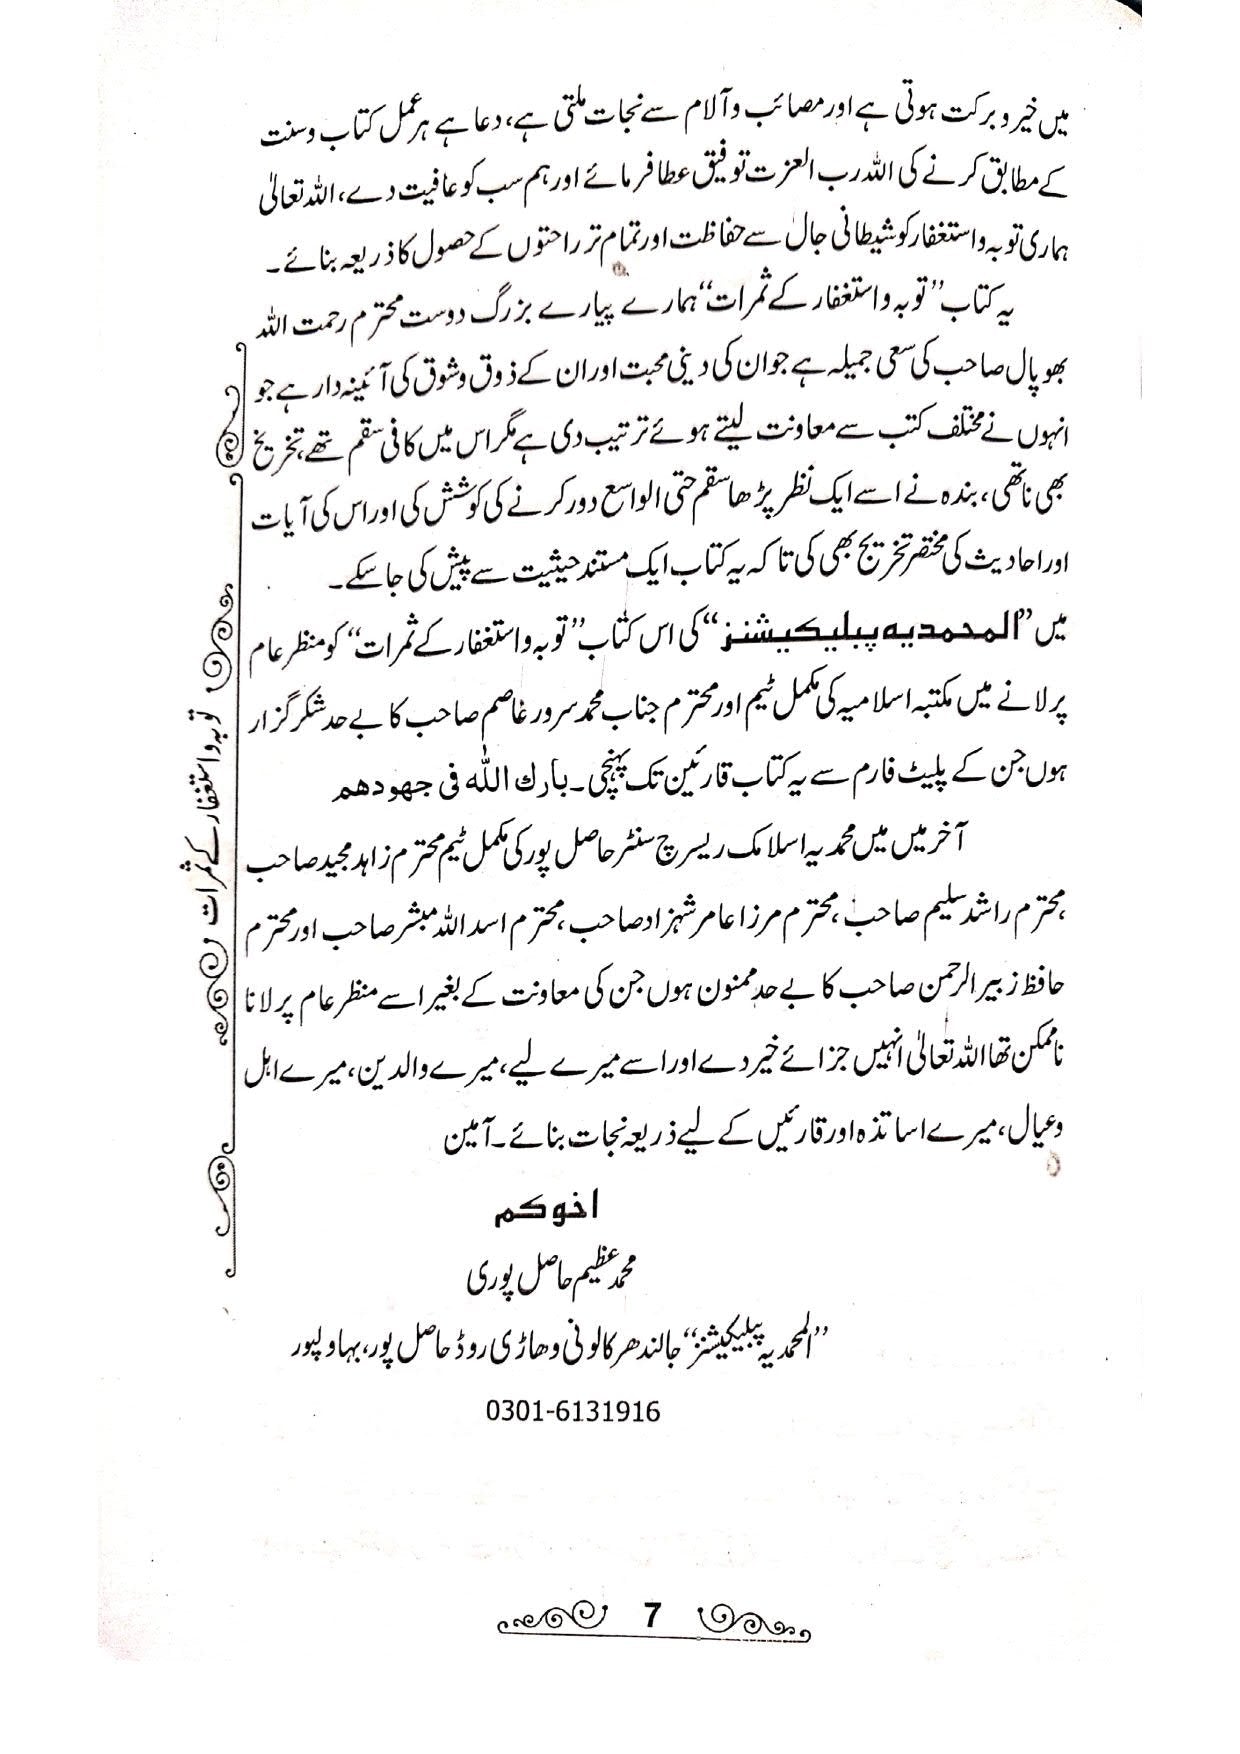 میں خیر و برکت ہوتی ہے اور مصائب و آلام سے نجات ملتی ہے، دعا ہے ہر عمل کتاب و سنت
کے مطابق کرنے کی اللہ رب العزت توفیق عطا فرمائے اور ہم سب کو عافیت دے، اللہ تعالیٰ
ہماری توبہ و استغفار کو شیطانی جال سے حفاظت اور تمام تر راحتوں کے حصول کا ذریعہ بنائے۔
یہ کتاب ”توبہ و استغفار کے ثمرات“ ہمارے پیارے بزرگ دوست محترم رحمت اللہ
بھوپال صاحب کی سعی جمیلہ ہے جو ان کی دینی محبت اور ان کے ذوق و شوق کی آئینہ دار ہے جو
انہوں نے مختلف کتب سے معاونت لیتے ہوئے ترتیب دی ہے مگر اس میں کافی سقم تھے، تخریج
بھی نا تھی، بندہ نے اسے ایک نظر پڑھا سقم حتی الواسع دور کرنے کی کوشش کی اور اس کی آیات
اور احادیث کی مختصر تخریج بھی کی تا کہ یہ کتاب ایک مستند حیثیت سے پیش کی جا سکے۔
میں ”المحمدیہ پبلیکیشنز“ کی اس کتاب ”توبہ و استغفار کے ثمرات“ کو منظر عام
پر لانے میں مکتبہ اسلامیہ کی مکمل ٹیم اور محترم جناب محمد سرور عاصم صاحب کا بے حد شکر گزار
ہوں جن کے پلیٹ فارم سے یہ کتاب قارئین تک پہنچی۔ بارك الله فی جهودهم
آخر میں میں محمدیہ اسلامک ریسرچ سنٹر حاصل پور کی مکمل ٹیم محترم زاہد مجید صاحب
، محترم راشد سلیم صاحب، محترم مرزا عامر شہزاد صاحب، محترم اسد اللہ مبشر صاحب اور محترم
حافظ زبیر الرحمن صاحب کا بے حد ممنون ہوں جن کی معاونت کے بغیر اسے منظر عام پر لانا
ناممکن تھا اللہ تعالیٰ انہیں جزائے خیر دے اور اسے میرے لیے، میرے والدین، میرے اہل
و عیال، میرے اساتذہ اور قارئیں کے لیے ذریعہ نجات بنائے۔ آمین
اخوکم
محمد عظیم حاصل پوری
”المحمدیہ پبلیکیشنز“ جالندھر کالونی وھاڑی روڈ حاصل پور، بہاولپور
0301-6131916
توبہ و استغفار کے ثمرات
7